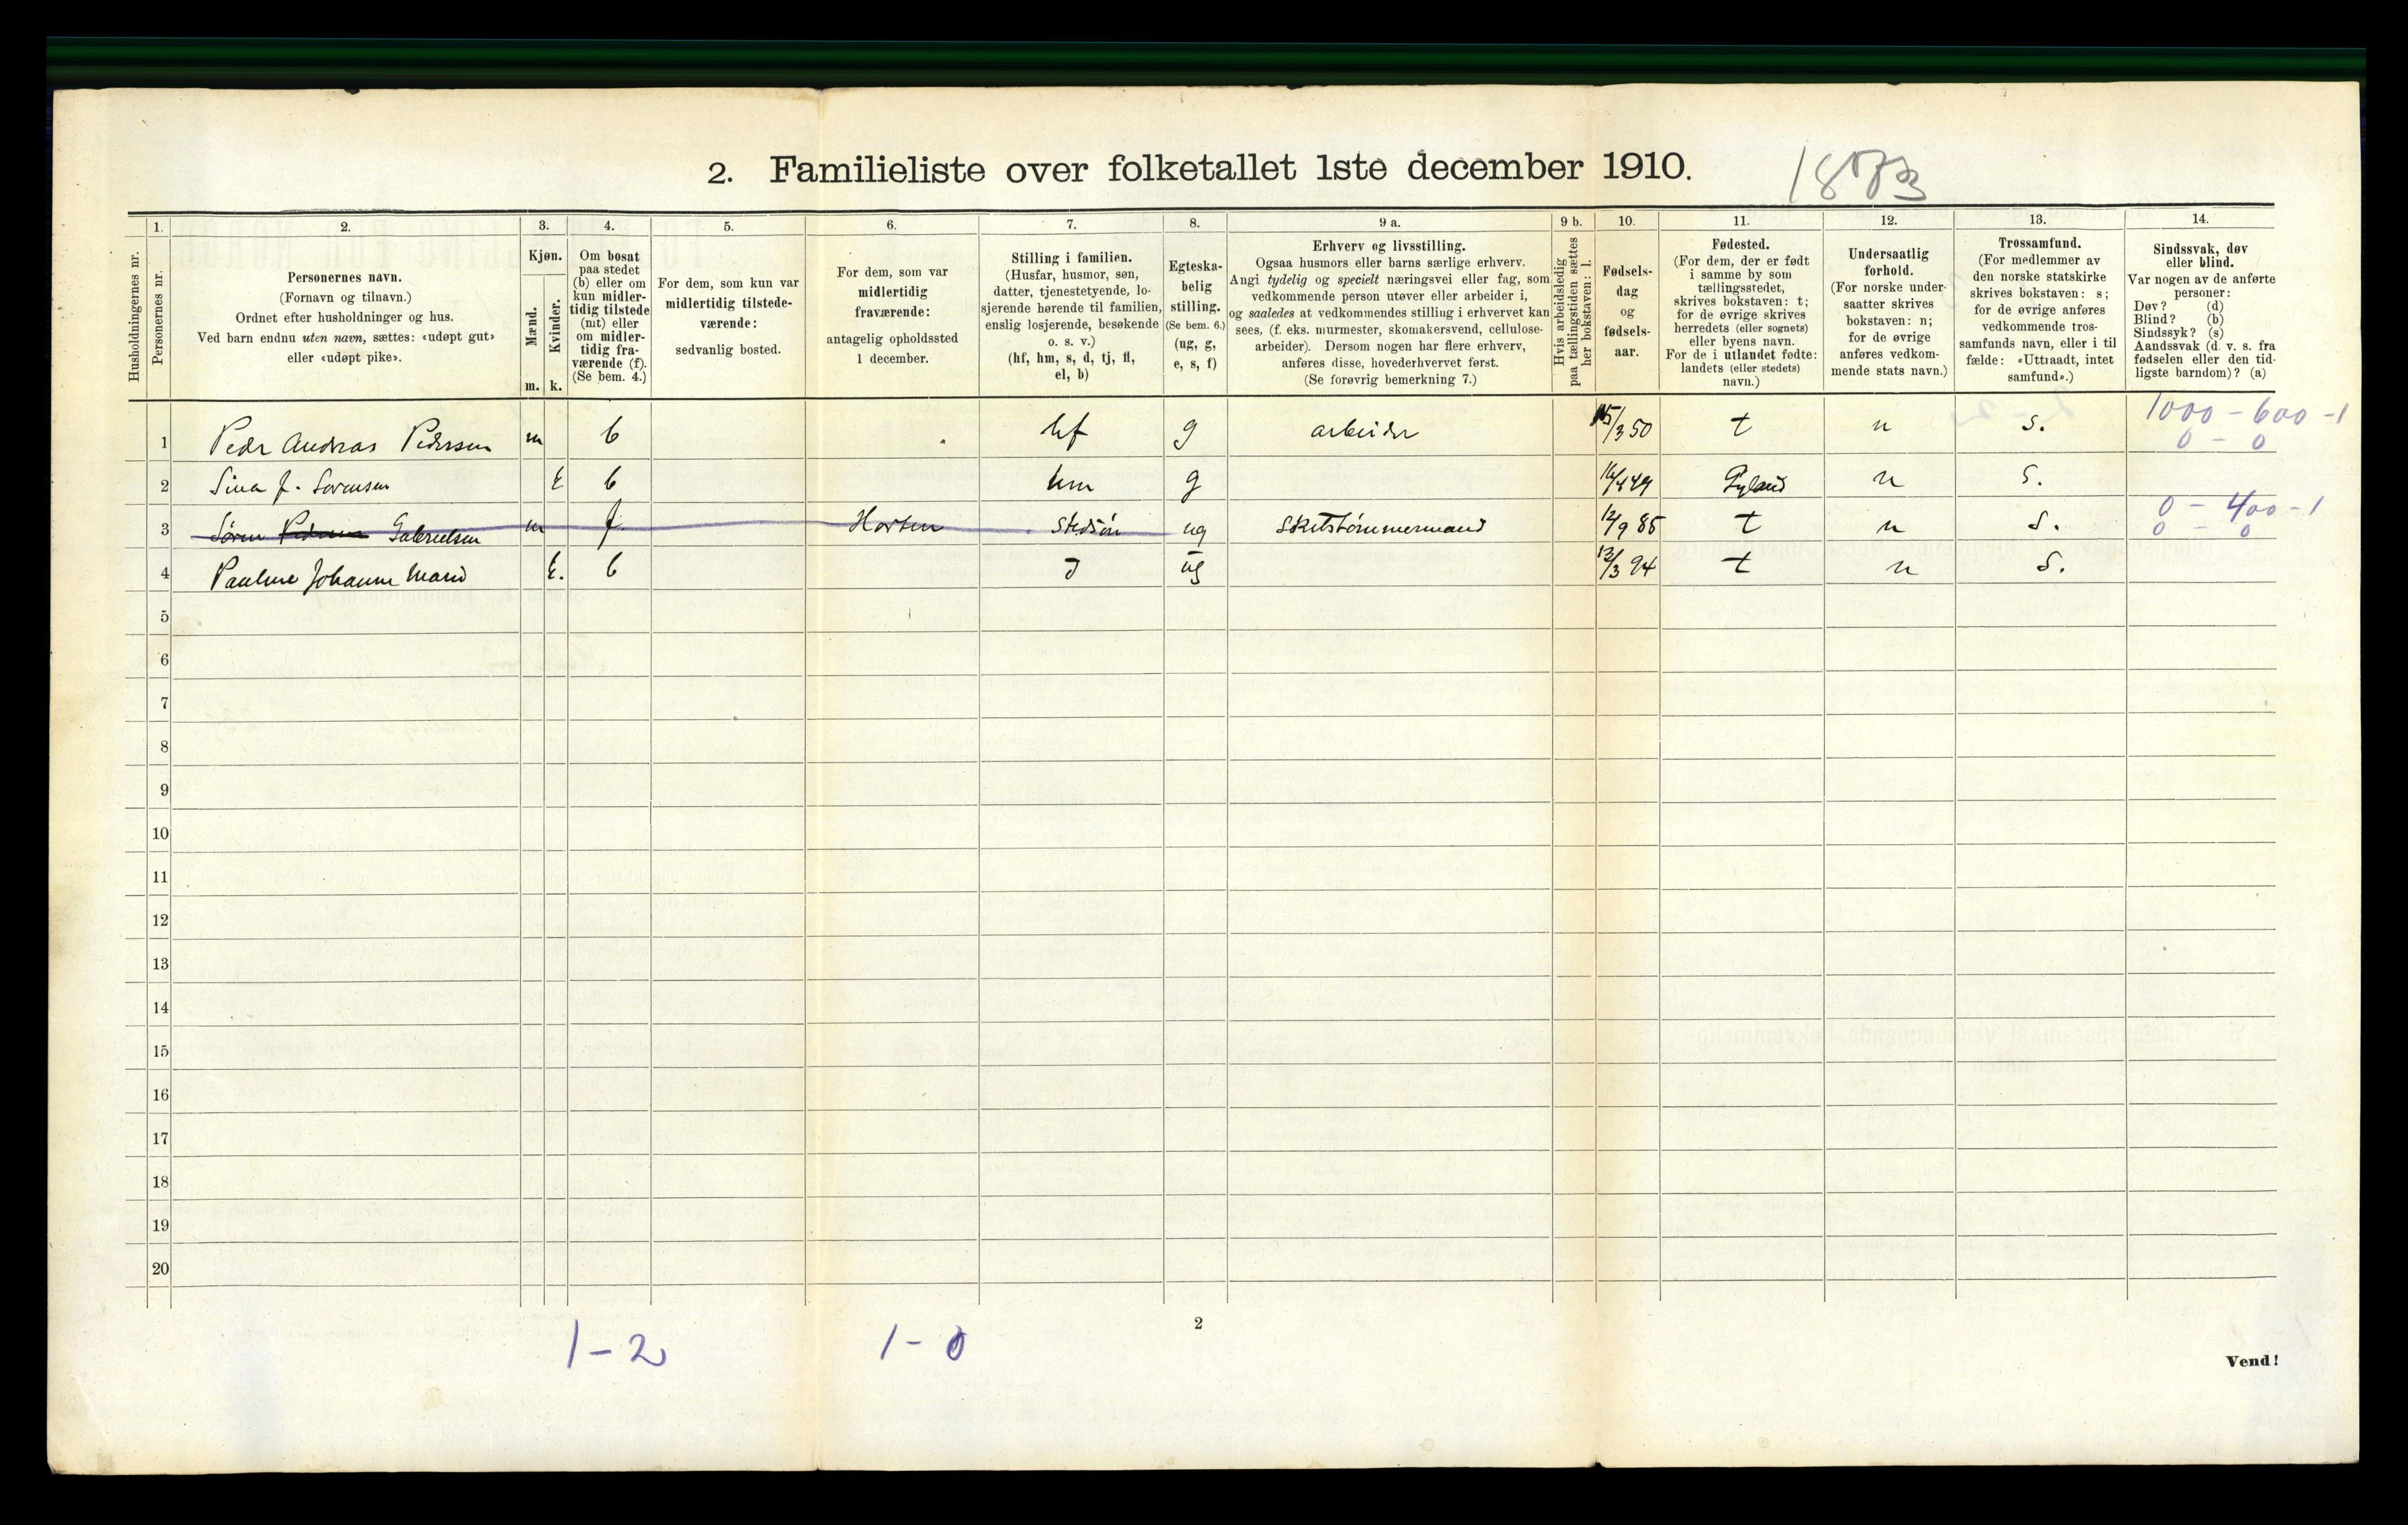 2. Familieliste over folketallet 1ste december 1910.
Husholdningernes nr.
1.
Personernes nr.
2.
Personernes navn.
(Fornavn og tilnavn.)
Ordnet efter husholdninger og hus.
Ved barn endnu uten navn, sættes: «udøpt gut»
eller «udøpt pike».
3.
Kjøn.
Mænd.
Kvinder.
m. k.
4.
Om bosat
paa stedet
(b) eller om
kun midler-
tidig tilstede
(mt) eller
om midler-
tidig fra-
værende (f).
(Se bem. 4.)
5.
For dem, som kun var
midlertidig tilstede-
værende:
sedvanlig bosted.
6.
For dem, som var
midlertidig
fraværende:
antagelig opholdssted
1 december.
7.
Stilling i familien.
(Husfar, husmor, søn,
datter, tjenestetyende, lo-
sjerende hørende til familien,
enslig losjerende, besøkende
o. s. v.)
(hf, hm, s, d, tj, fl,
el, b)
8.
Egteska-
belig
stilling.
(Se bem. 6.)
(ug, g,
e, s, f)
9 a.
Erhverv og livsstilling.
Ogsaa husmors eller barns særlige erhverv.
Angi tydelig og specielt næringsvei eller fag, som
vedkommende person utøver eller arbeider i,
og saaledes at vedkommendes stilling i erhvervet kan
sees, (f. eks. murmester, skomakersvend, cellulose-
arbeider). Dersom nogen har flere erhverv,
anføres disse, hovederhvervet først.
(Se forøvrig bemerkning 7.)
9 b.
Hvis arbeidsledig
paa tællingstiden sættes
her bokstaven: l.
10.
Fødsels-
dag
og
fødsels-
aar.
11.
Fødested.
(For dem, der er født
i samme by som
tællingsstedet,
skrives bokstaven: t;
for de øvrige skrives
herredets (eller sognets)
eller byens navn.
For de i utlandet fødte:
landets (eller stedets)
navn.)
12.
Undersaatlig
forhold.
(For norske under-
saatter skrives
bokstaven: n;
for de øvrige
anføres vedkom-
mende stats navn.)
13.
Trossamfund.
(For medlemmer av
den norske statskirke
skrives bokstaven: s;
for de øvrige anføres
vedkommende tros-
samfunds navn, eller i til
fælde: «Uttraadt, intet
samfund».)
14.
Sindssvak, døv
eller blind.
Var nogen av de anførte
personer:
Døv? (d)
Blind? (b)
Sindssyk? (s)
Aandssvak (d. v. s. fra
fødselen eller den tid-
ligste barndom)? (a)
1 Peder Andreas Pedersen m b hf g arbeider 15/3 50 t n S. 1000 - 600 - 1
0 - 0
2 Sina J. Sørensen k b hm g 49 Gyland n S.
3 Søren Gabrielsen m f Horten stedsøn ug Skibstømmermand 12/9 85 t n S. 0 - 400 - 1
0 - 0
4 Pauline Johanne Marie k. b d ug 13/3 94 t n S.
5
6
7
8
9
10
11
12
13
14
15
16
17
18
19
20
1 - 2 1 - 0
2
Vend!